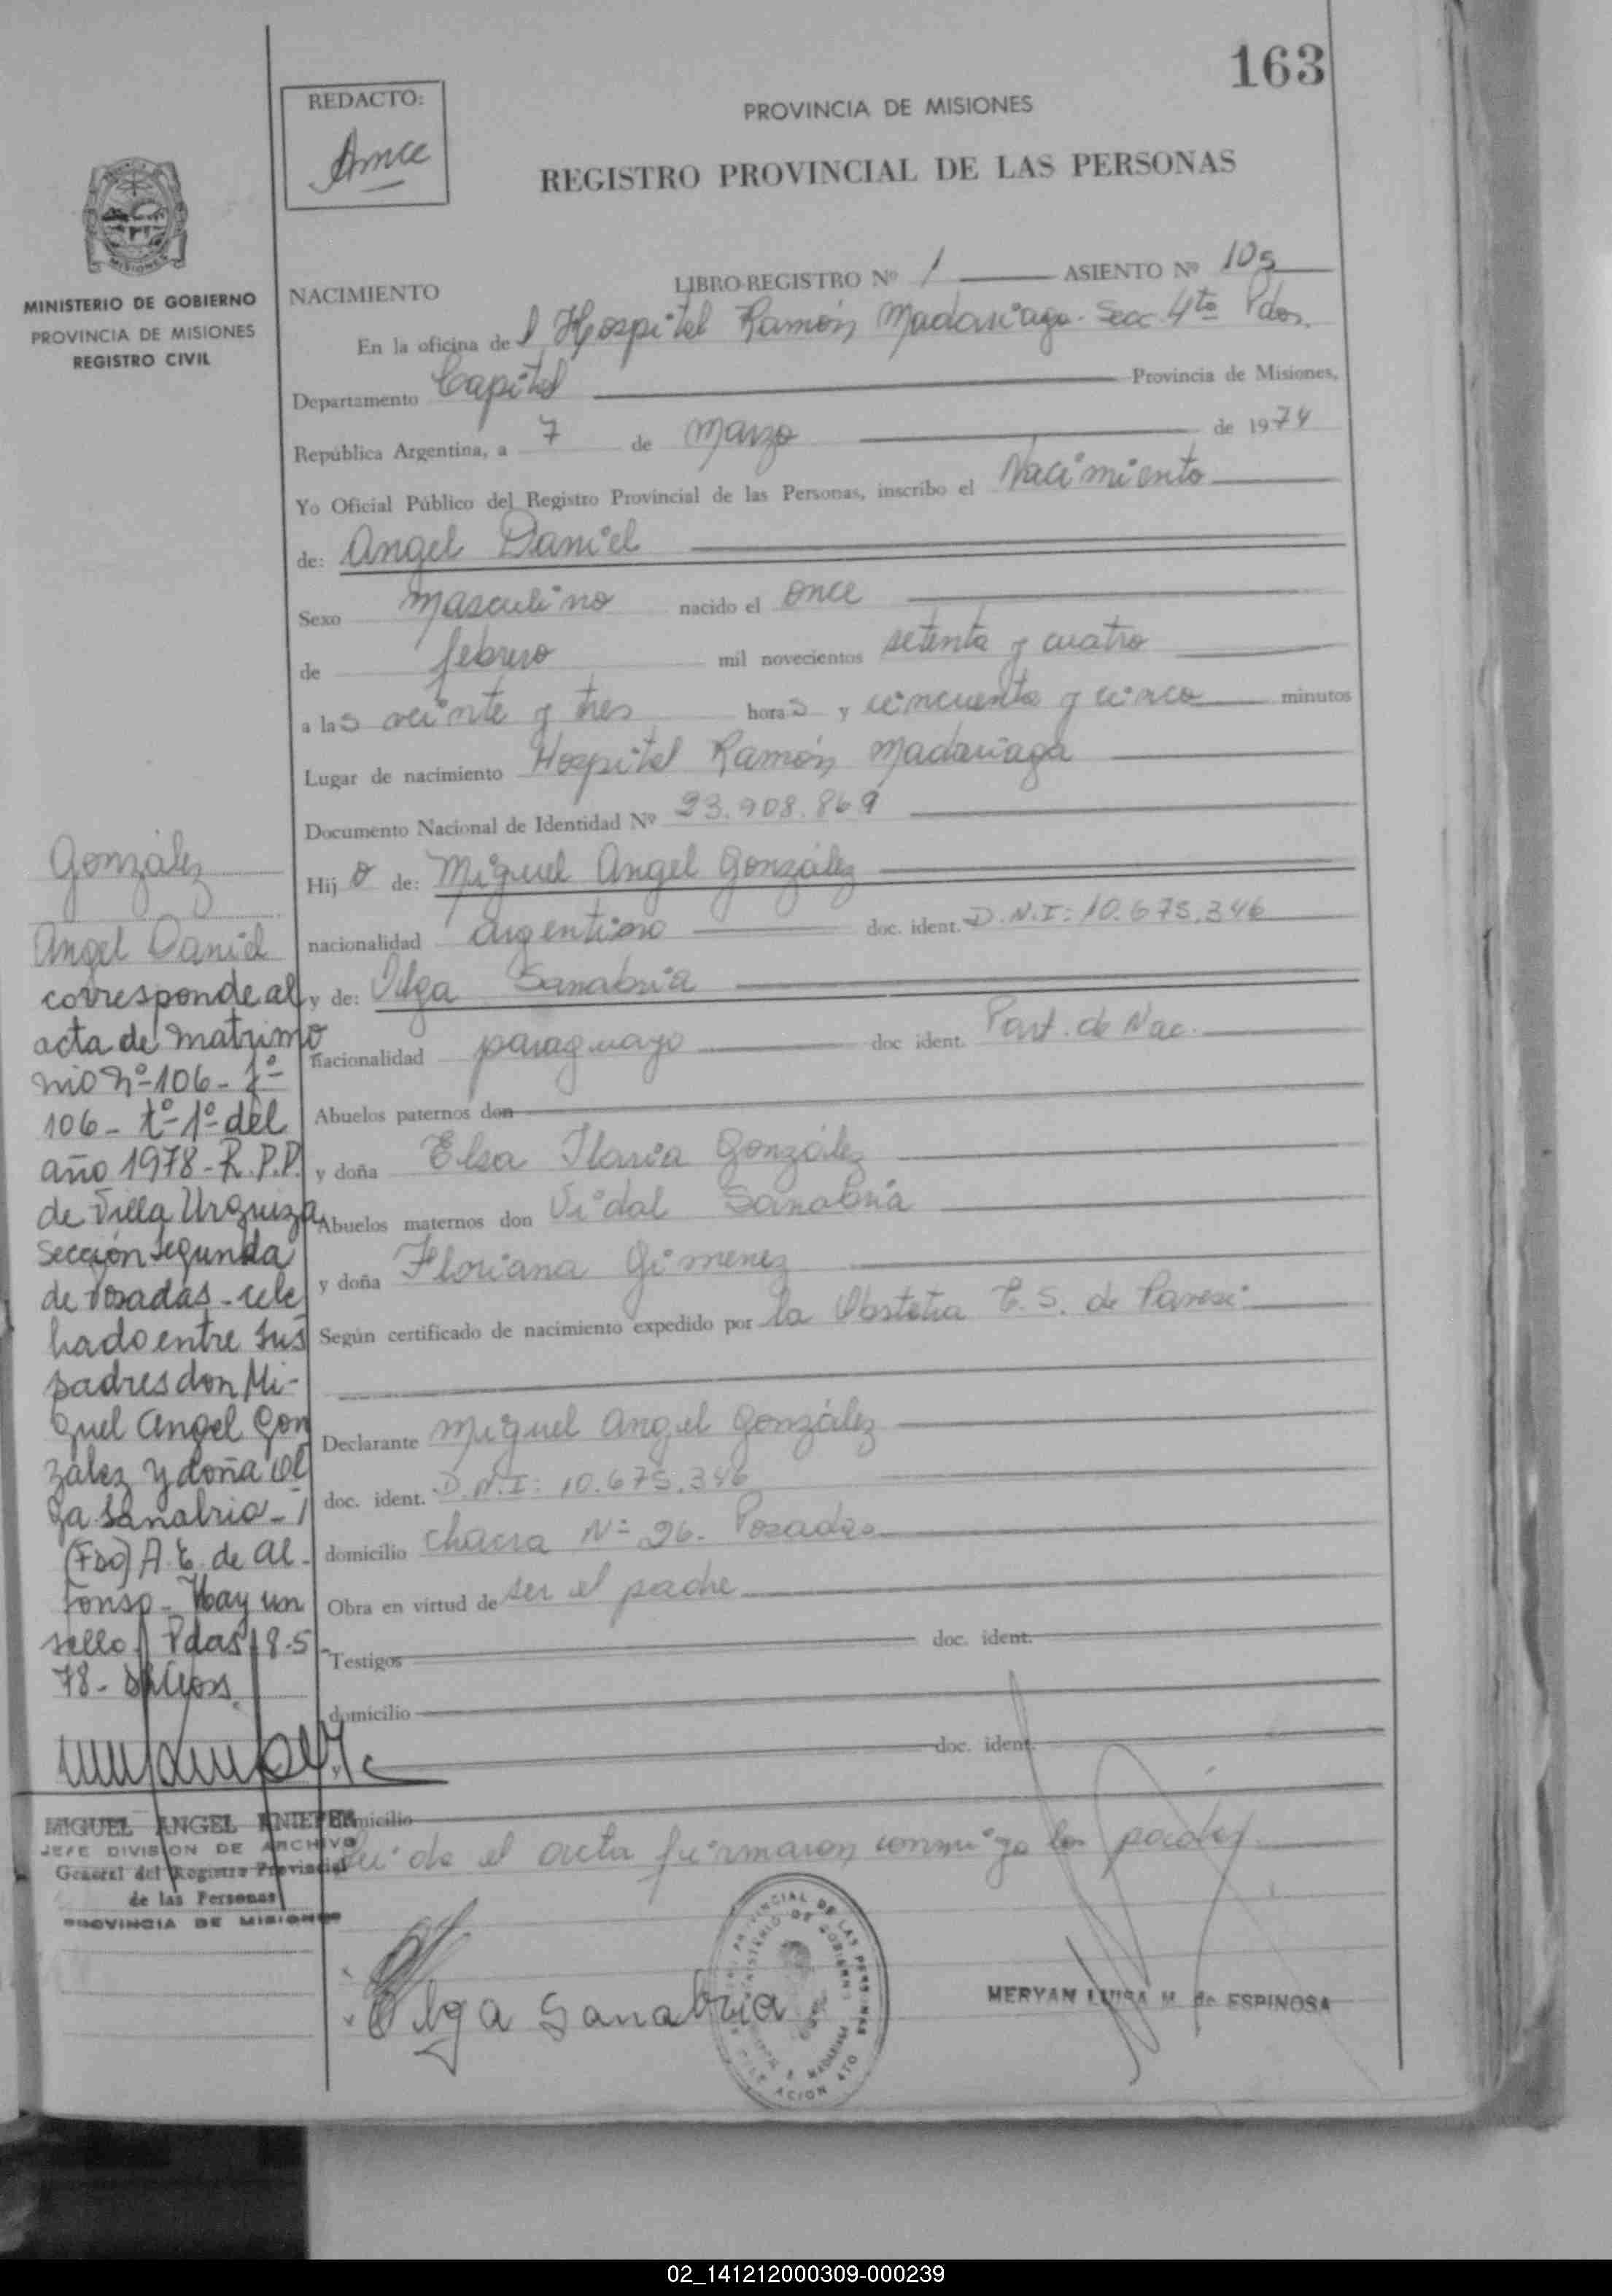 163
REDACTO:
PROVINCIA DE MISIONES
REGISTRO PROVINCIAL DE LAS PERSONAS
MISIONES
MINISTERIO DE GOBIERNO
PROVINCIA DE MISIONES
REGISTRO CIVIL
NACIMIENTO LIBRO REGISTRO Nº 1 ASIENTO Nº 105
En la oficina de l Hospital Ramón Madariaga. Secc 4ta Pdas.
Departamento Capital Provincia de Misiones,
República Argentina, a 7 de Marzo de 1974
Yo Oficial Público del Registro Provincial de las Personas, inscribo el Nacimiento
de: Angel Daniel
Sexo masculino nacido el once
de febrero mil novecientos setenta y cuatro
a las veinte y tres horas y cincuenta y cinco minutos
Lugar de nacimiento Hospital Ramón Madariaga
Documento Nacional de Identidad Nº 23.908.869
Hijo de: Miguel Angel González
nacionalidad argentino doc. ident. D.N.I: 10.675.346
y de: Olga Sanabria
nacionalidad paraguaya doc ident. Part. de Nac.
Abuelos paternos don
y doña Elsa Ilaria González
Abuelos maternos don Vidal Sanabria
y doña Floriana Gimenez
Según certificado de nacimiento expedido por la Obstetra E. S. de Paresi
Declarante Miguel Angel González
doc. ident. D.N.I: 10.675.346
domicilio Chacra Nº 26. Posadas
Obra en virtud de ser el padre
Testigos doc. ident.
domicilio
y doc. ident.
domicilio
Leída el acta firmaron conmigo los padres
González
Angel Daniel
corresponde al
acta de matrimo
nio Nº 106 - fº
106 - tº 1º del
año 1978 - R.P.P.
de Villa Urquiza
Sección Segunda
de Posadas - cele
brado entre sus
padres don Mi-
guel Angel Gon
zález y doña Ol
ga Sanabria -
(Fdo) A. E. de Al
fonso - Hay un
sello. Pdas 18-5-
78 -
MIGUEL ANGEL
JEFE DIVISION DE ARCHIVO
General del Registro Provincial
de las Personas
PROVINCIA DE MISIONES
Olga Sanabria
MERYAN LUISA M. de ESPINOSA
02_141212000309-000239